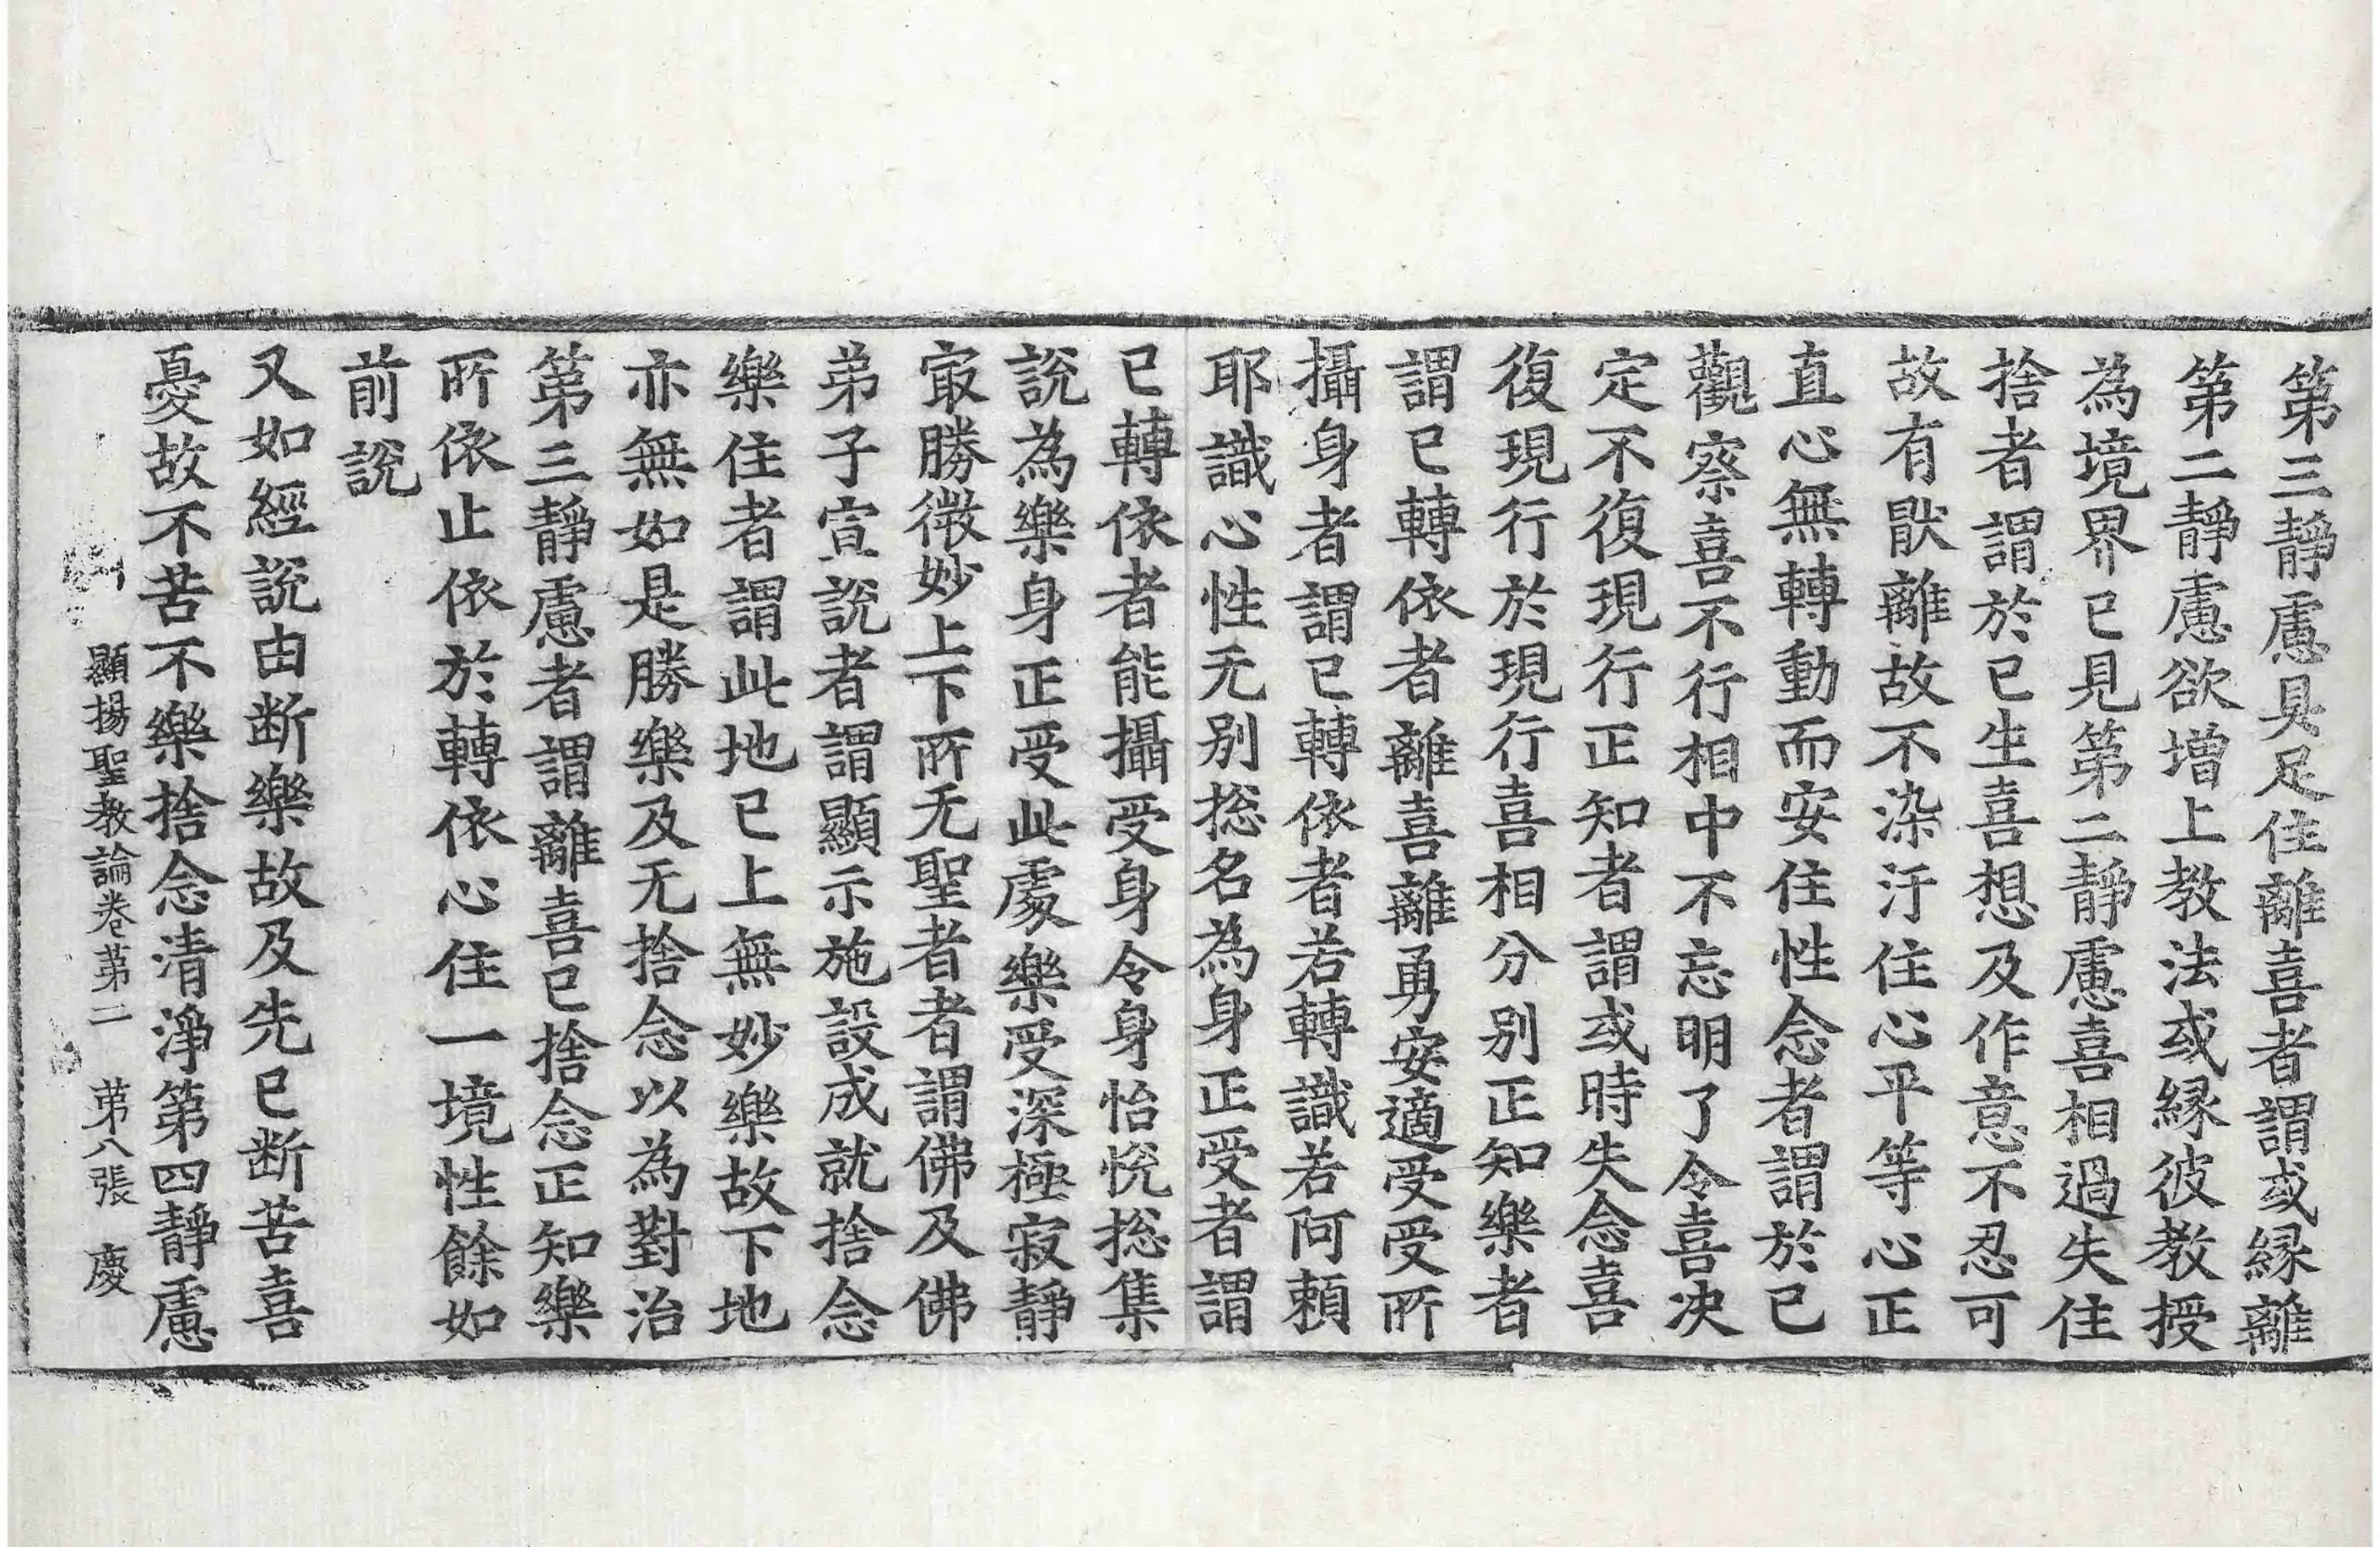 第三靜慮具足住離喜者謂或縁離
第二靜慮欲增上教法或縁彼教授
為境界已見第二靜慮喜相過失住
捨者謂於已生喜想及作意不忍可
故有猒離故不染汙住心平等心正
直心無轉動而安住性念者謂於已
觀察喜不行相中不忘明了令喜决
定不復現行正知者謂或時失念喜
復現行於現行喜相分别正知樂者
謂已轉依者離喜離勇安適受受所
攝身者謂已轉依者若轉識若阿頼
耶識心性无別捴名為身正受者謂
已轉依者能攝受身令身怡悅捴集
說為樂身正受此處樂受深極寂靜
冣勝微妙上下所无聖者者謂佛及佛
弟子宣說者謂顯示施設成就捨念
樂住者謂此地已上無妙樂故下地
亦無如是勝樂及无捨念以為對治
第三靜慮者謂離喜已捨念正知樂
所依止依於轉依心住一境性餘如
前說
又如經說由断樂故及先已断苦喜
憂故不苦不樂捨念清淨第四靜慮
顯揚聖教論卷第二 第八張 慶